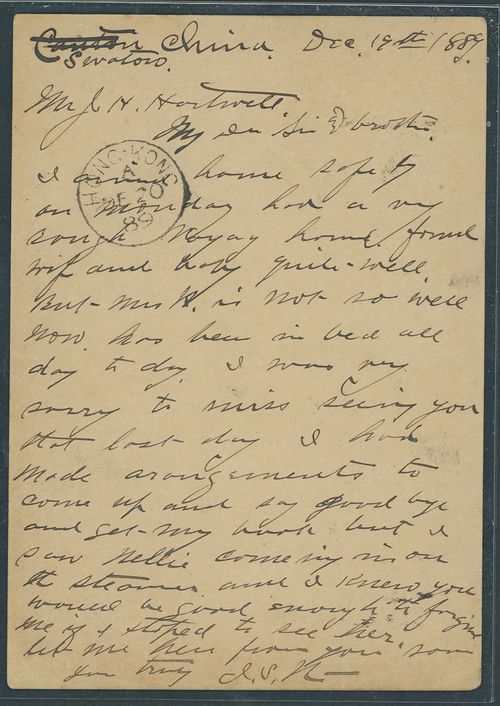 Canton China. Dec. 19th 1889.
Swatow.
Mr J. H. Hartwell.
My Dr Sir & brother.
HONG-KONG
A
DE 20
89
I arrived home safely
on Monday had a very
rough voyag home. found
wif and baby quite well.
But Mrs K. is not so well
now. has been in bed all
day to day. I was very
sorry to miss seeing you
that last day I had
made arangements to
come up and say good bye
and get my book but I
saw Nellie coming in on
the steamer and I knew you
would be good enough to forgive
me if I stoped to see her.
let me hear from you soon
you truly